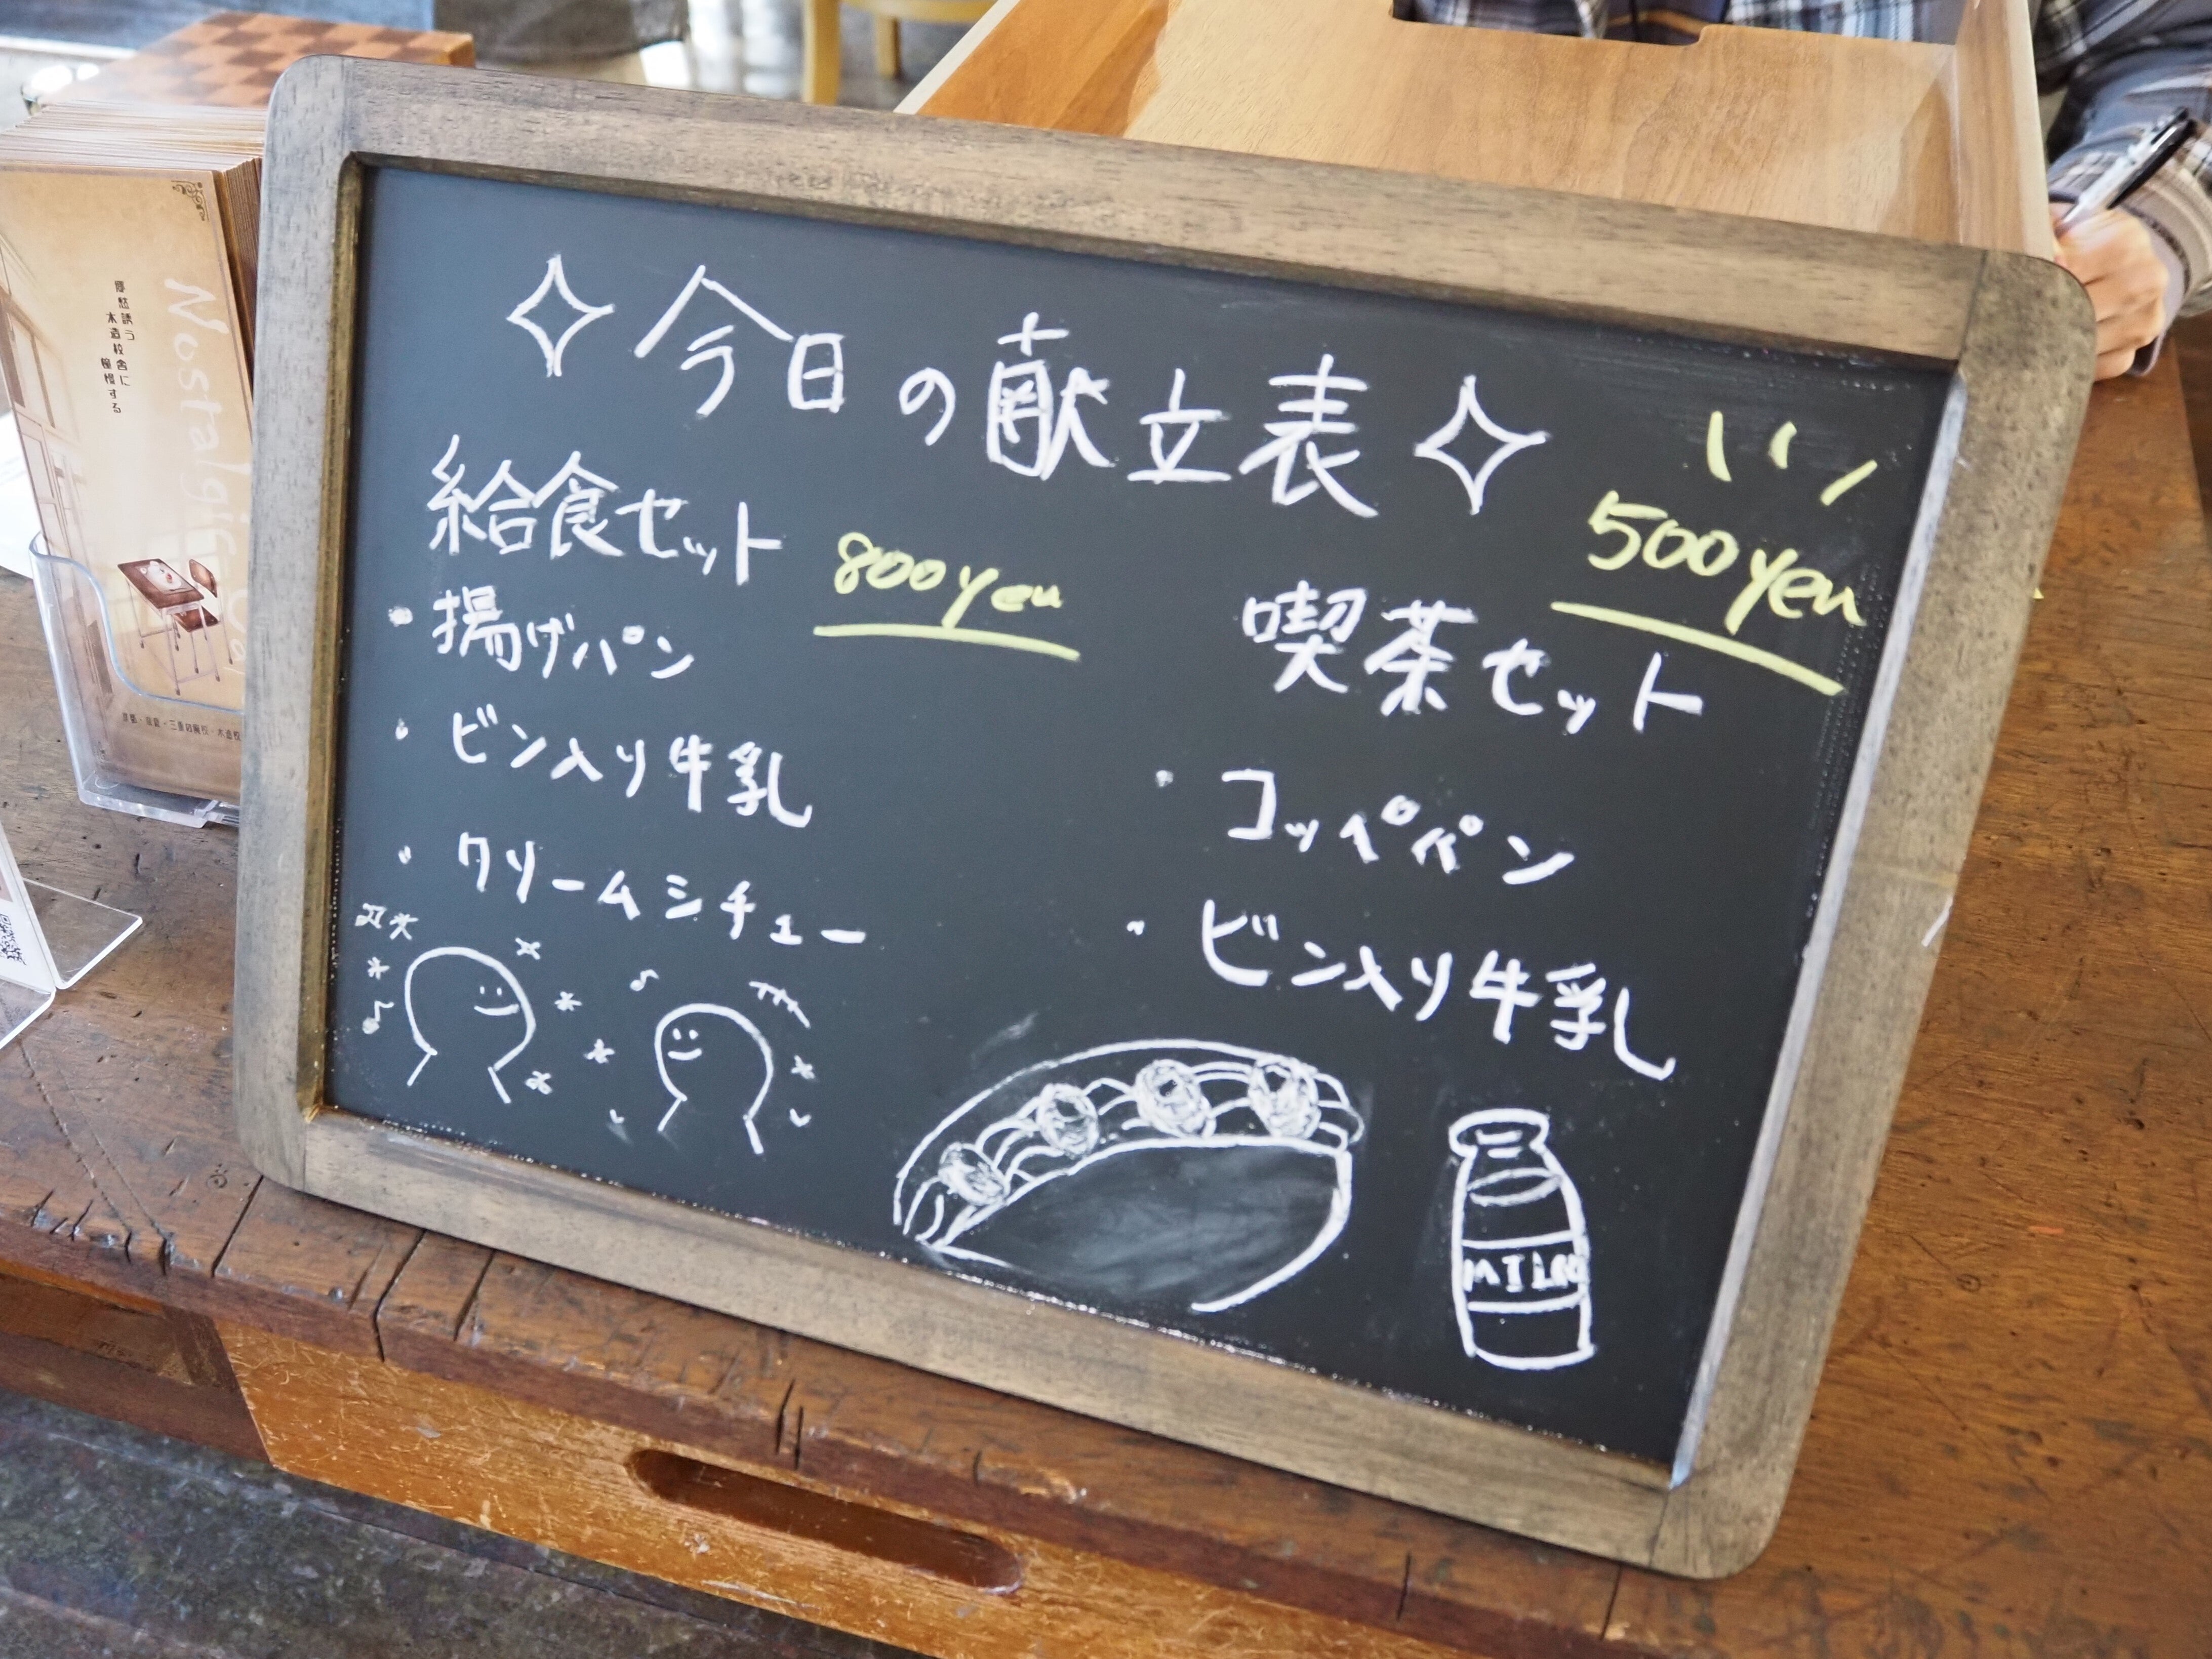 今日の献立表
給食セット 800yen
・揚げパン
・ビン入り牛乳
・クリームシチュー
500yen
喫茶セット
・コッペパン
・ビン入り牛乳
MILK
Nostalgic
郷愁誘う
木造校舎に